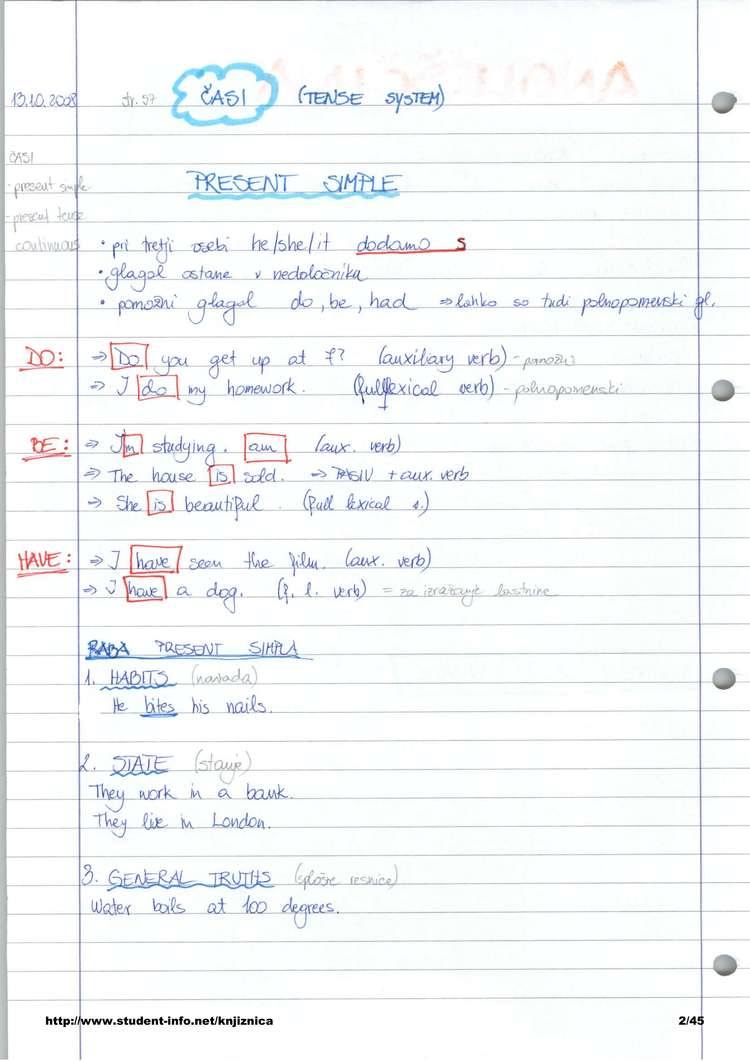 13.10.2008 str. 57 ČASI (TENSE SYSTEM)
ČASI
- present simple
- present tense
continuous
PRESENT SIMPLE
• pri tretji osebi he/she/it dodamo s
• glagol ostane v nedoločniku
• pomožni glagol do, be, had ⇒ lahko so tudi polnopomenski gl.
DO: ⇒ Do you get up at 7? (auxiliary verb) - pomožni
⇒ I do my homework. (full lexical verb) - polnopomenski
BE: ⇒ I'm studying. am (aux. verb)
⇒ The house is sold. ⇒ PASIV + aux. verb
⇒ She is beautiful. (full lexical
HAVE: ⇒ I have seen the film. (aux. verb)
⇒ I have a dog. (f. l. verb) = za izražanje lastnine
RABA PRESENT SIMPLA
1. HABITS (navada)
He bites his nails.
2. STATE (stanje)
They work in a bank.
They live in London.
3. GENERAL TRUTHS (splošne resnice)
Water boils at 100 degrees.
http://www.student-info.net/knjiznica 2/45